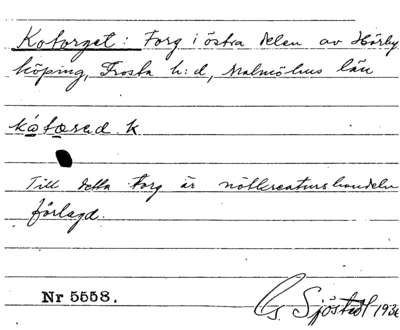 Kotorget: Torg i östra delen av Hörby
köping, Frosta h:d, Malmöhus län
Till detta torg är nötkreaturshandeln
förlagd.
Nr 5558.
G. Sjöstedt 1936